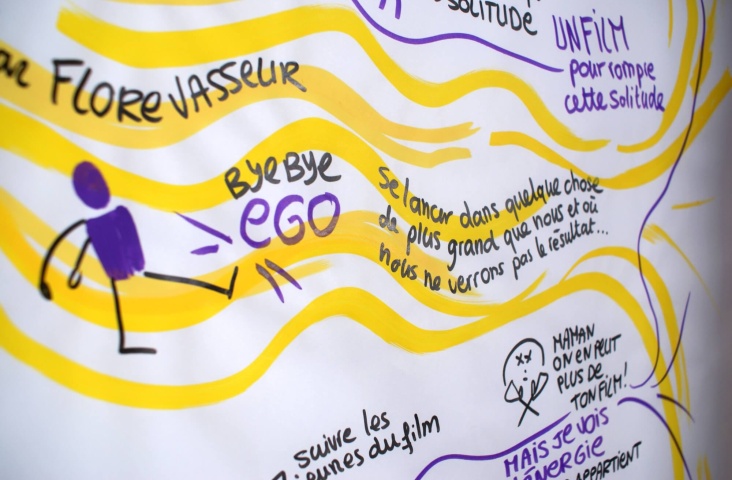 SOLITUDE
UN FILM
pour rompre
cette solitude
FLORE VASSEUR
BYE BYE
EGO
Se lancer dans quelque chose
de plus grand que nous et où
nous ne verrons pas le résultat...
MAMAN
ON EN PEUT
PLUS DE
TON FILM!
suivre les
jeunes du film
MAIS JE VOIS
L'ÉNERGIE
APPARTIENT